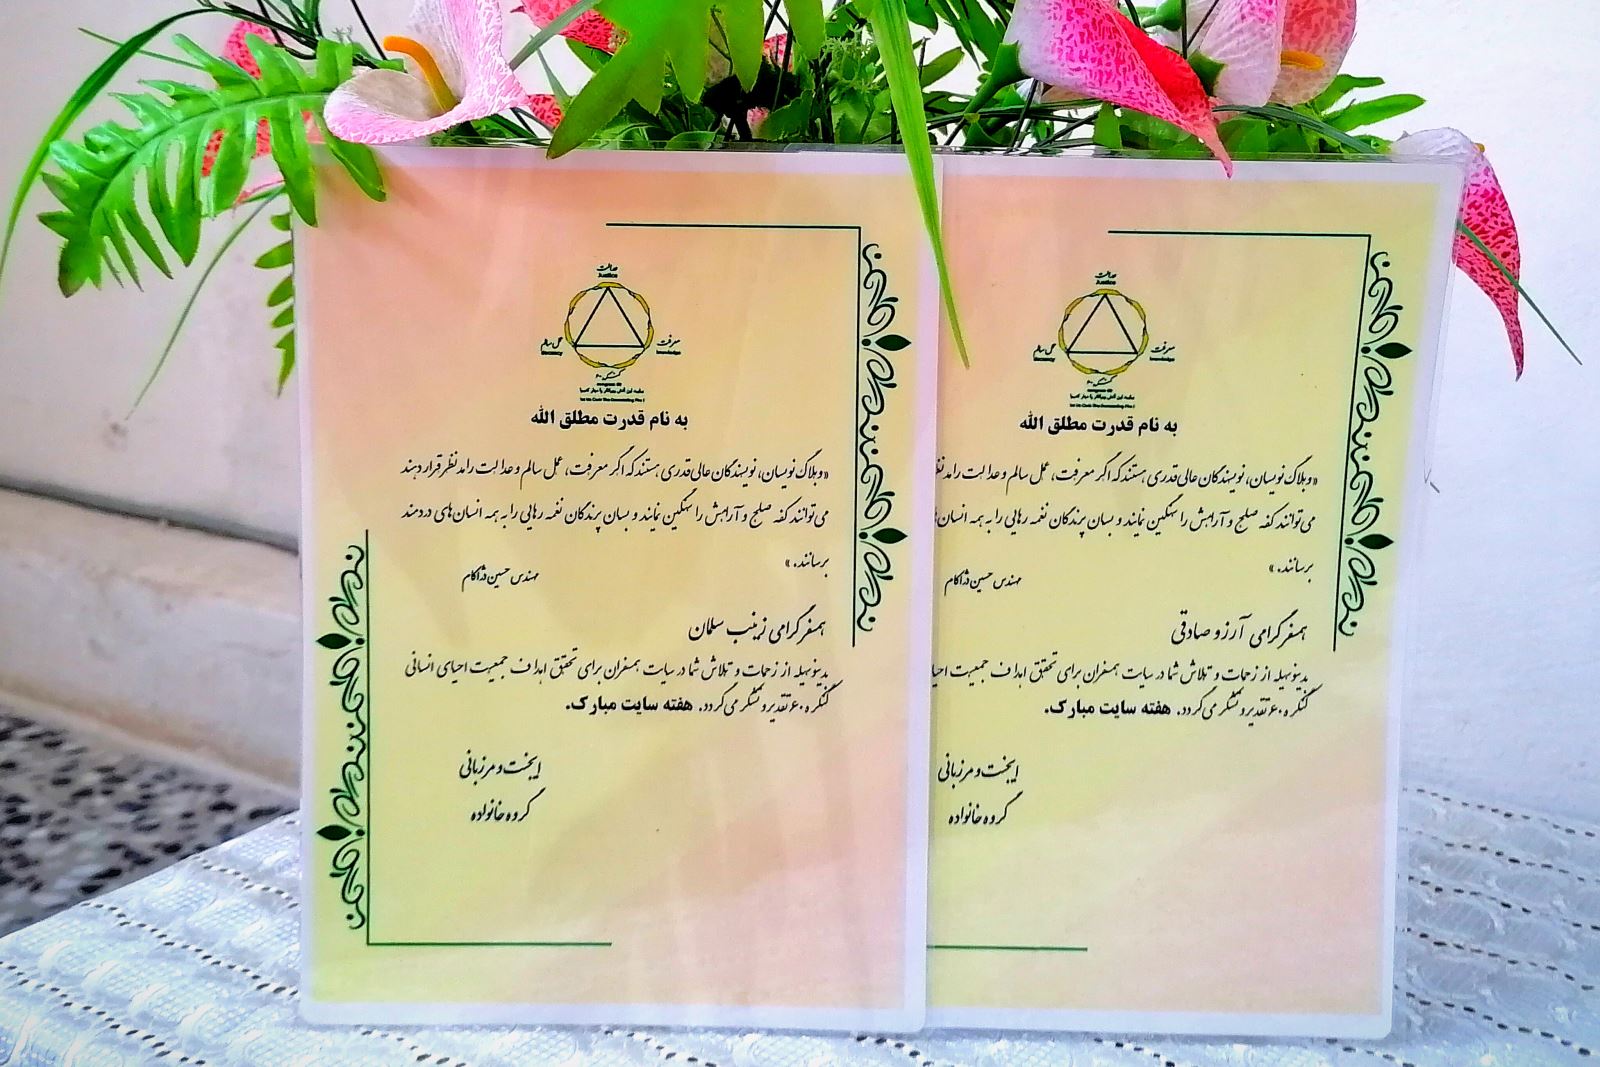 عدالت
Justice
معرفت
knowledge
عمل سالم
کنگره ۶۰
congress 60
به نام قدرت مطلق الله
«وبلاگ نویسان، نویسندگان عالی قدری هستند که اگر معرفت، عمل سالم و عدالت را مد نظر قرار دهند
می‌توانند کفه صلح و آرامش را سنگین نمایند و بسان پرندگان نغمه رهایی را به همه انسان‌های دردمند
برسانند.»
مهندس حسین دژاکام
همسفر گرامی زینب سلمان
بدینوسیله از زحمات و تلاش شما در سایت همسفران برای تحقق اهداف جمعیت احیای انسانی
کنگره ۶۰ تقدیر و تشکر می گردد. هفته سایت مبارک.
ایجنت و مرزبانی
گروه خانواده
عدالت
Justice
معرفت
knowledge
عمل سالم
کنگره ۶۰
congress 60
به نام قدرت مطلق الله
«وبلاگ نویسان، نویسندگان عالی قدری هستند که اگر معرفت، عمل سالم و عدالت را مد
می‌توانند کفه صلح و آرامش را سنگین نمایند و بسان پرندگان نغمه رهایی را به همه انسان
برسانند.»
مهندس حسین دژاکام
همسفر گرامی آرزو صادقی
بدینوسیله از زحمات و تلاش شما در سایت همسفران برای تحقق اهداف جمعیت
کنگره ۶۰ تقدیر و تشکر می گردد. هفته سایت مبارک.
ایجنت و مرزبانی
گروه خانواده